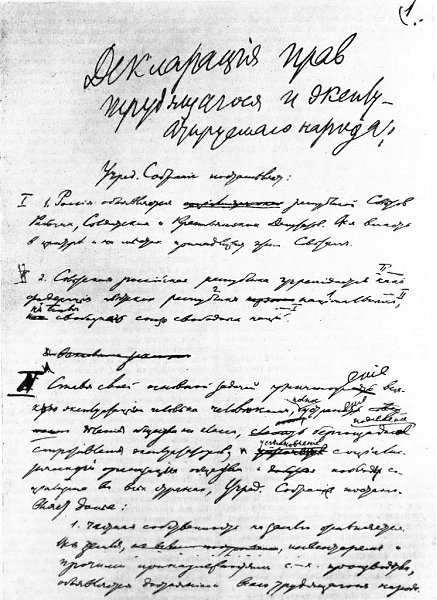 (1.
Декларація прав
трудящагося и эксплу-
атируемаго народа.
Учред. Собрание постановляет:
I 1. Россия объявляется республикой Советов
Рабочих, Солдатских и Крестьянских Депутатов. Вся власть
в центре и на местах принадлежит этим Советам.
2. Советская российская республика учреждается как
федерация республик национальных,
свободных наций.
Ставя своей основной задачей уничтожение вся-
кой эксплуатации человека человеком, полное устранение
деления общества на классы, беспощадное
эксплуататоров, установление социалис-
тической организации общества и победы со-
циализма во всех странах, Учред. Собрание постано-
вляет далее:
1. частная собственность на землю отменяется.
Вся земля, инвентарем и
прочими принадлежностями с.-х. производства,
объявляется достоянием всего трудящегося народа.